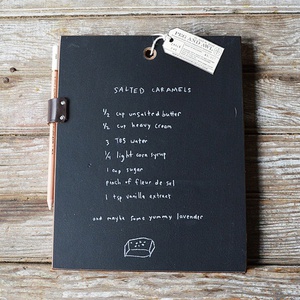 PEG AND AWL
SALTED CARAMELS
1/2 cup unsalted butter
1/2 cup heavy cream
3 TBS water
1/4 light corn syrup
1 cup sugar
pinch of fleur de sel
1 tsp vanilla extract
and maybe some yummy lavender